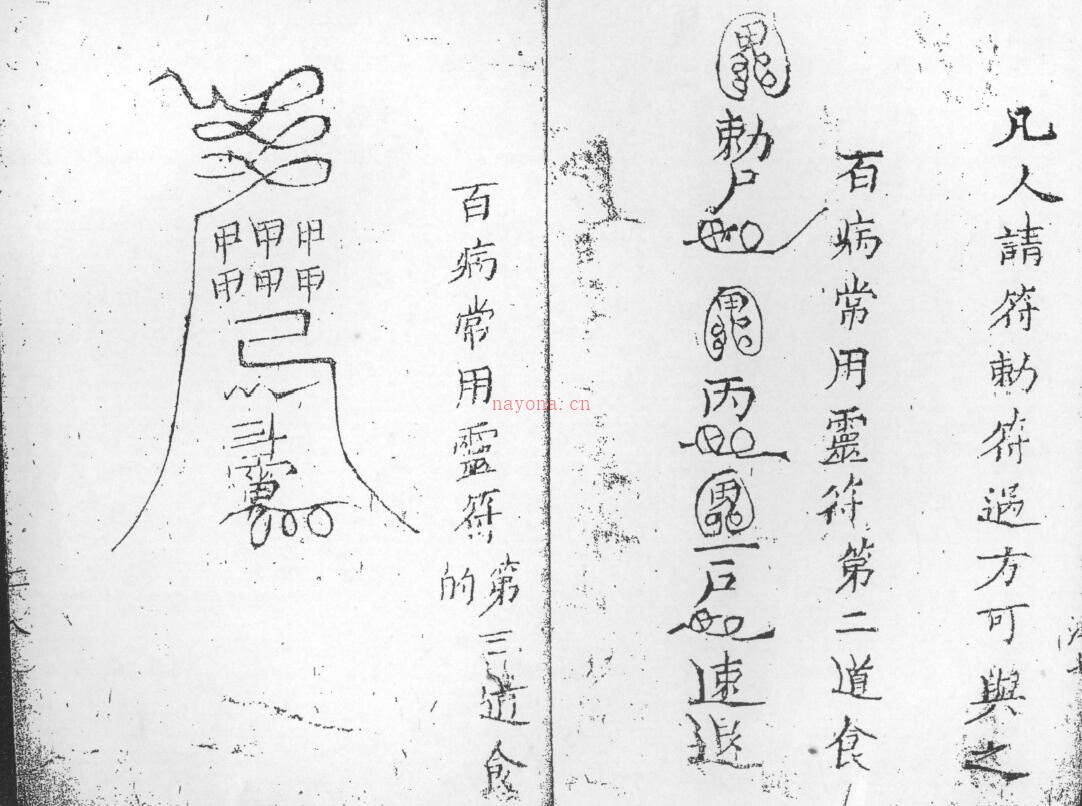 凡人請符勅符過方可與之
百病常用靈符第二道食
勅尸
丙
尸
速退
百病常用靈符第三道食
的
甲甲甲
甲甲甲
己
斗
nayona.cn